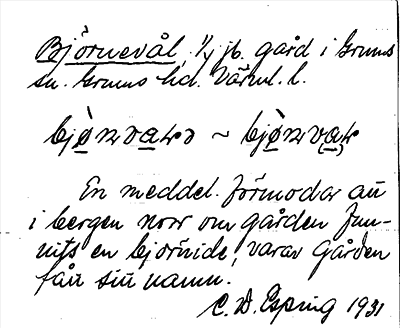 Björnevål, 1/1 jb. gård i Grums
sn. Grums hd. Värml. l.
~
En meddel. förmodar att
i bergen norr om gården fun-
nits en björnide, varav Gården
fått sitt namn.
C. W. Esping 1931